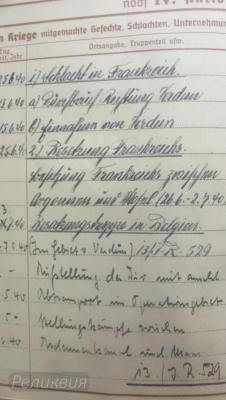 noch IV. Aktiv
im Kriege mitgemachte Gefechte, Schlachten, Unternehmun
Tag, Jahr
Ortsangabe, Truppenteil usw.
5.6.40 1) Schlacht in Frankreich.
6.40 a) Durchbruch Festung Verdun
15.6.40 b) Einnahme von Verdun
25.6.40 2) Besetzung Frankreichs.
Besetzung Frankreichs zwischen
Argonnen und Mosel (26.6.-2.7.40)
Besatzungstruppe in Belgien.
(Im Gebiet v. Verdun) 13/I.R. 529
Aufstellung der Div.
5.40 Abtransport ins Operationsgebiet
Stellungskämpfe zwischen
6.40 und Maas
13./J.R. 529
Реликвия